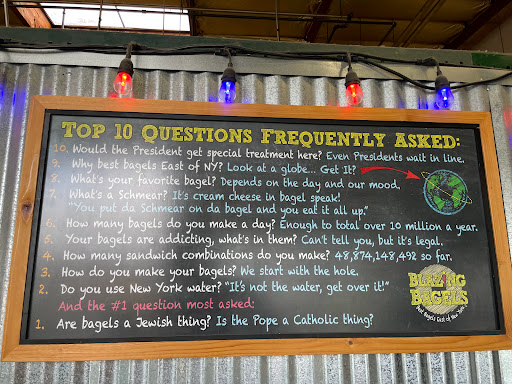 Top 10 Questions Frequently Asked:
10. Would the President get special treatment here? Even Presidents wait in line.
9. Why best bagels East of NY? Look at a globe... Get It?
8. What's your favorite bagel? Depends on the day and our mood.
7. What's a Schmear? It's cream cheese in bagel speak!
"You put da Schmear on da bagel and you eat it all up."
6. How many bagels do you make a day? Enough to total over 10 million a year.
5. Your bagels are addicting, what's in them? Can't tell you, but it's legal.
4. How many sandwich combinations do you make? 48,874,148,492 so far.
3. How do you make your bagels? We start with the hole.
2. Do you use New York water? "It's not the water, get over it!"
And the #1 question most asked:
1. Are bagels a Jewish thing? Is the Pope a Catholic thing?
Blazing
Bagels
Best Bagels East of New York